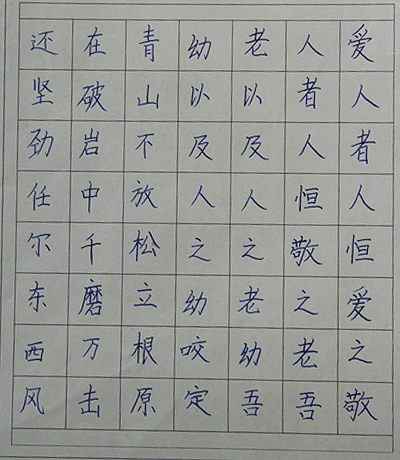 爱人者人恒爱之敬
人者人恒敬之老吾
老以及人之老幼吾
幼以及人之幼咬定
青山不放松立根原
在破岩中千磨万击
还坚劲任尔东西风